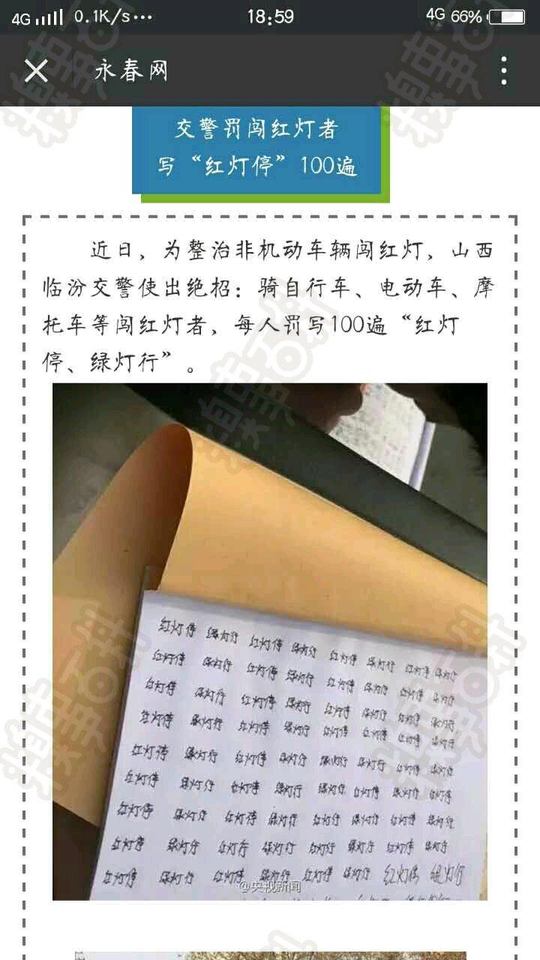 4G 0.1K/s··· 18:59 4G 66%
永春网
交警罚闯红灯者
写“红灯停”100遍
近日，为整治非机动车辆闯红灯，山西
临汾交警使出绝招：骑自行车、电动车、摩
托车等闯红灯者，每人罚写100遍“红灯
停、绿灯行”。
红灯停 绿灯行 红灯停 绿灯行 红灯停 绿灯行 红灯停 绿灯行
红灯停 绿灯行 红灯停 绿灯行 红灯停 绿灯行 红灯停 绿灯行
红灯停 绿灯行 红灯停 绿灯行 红灯停 绿灯行 红灯停 绿灯行
红灯停 绿灯行 红灯停 绿灯行 红灯停 绿灯行 红灯停 绿灯行
红灯停 绿灯行 红灯停 绿灯行 红灯停 绿灯行 红灯停 绿灯行
红灯停 绿灯行 红灯停 绿灯行 红灯停 绿灯行 红灯停 绿灯行
红灯停 绿灯行 红灯停 绿灯行 红灯停 绿灯行 红灯停 绿灯行
红灯停 绿灯行 红灯停 绿灯行 红灯停 绿灯行 红灯停 绿灯行
红灯停 绿灯行 红灯停 绿灯行 红灯停 绿灯行 红灯停 绿灯行
@央视新闻